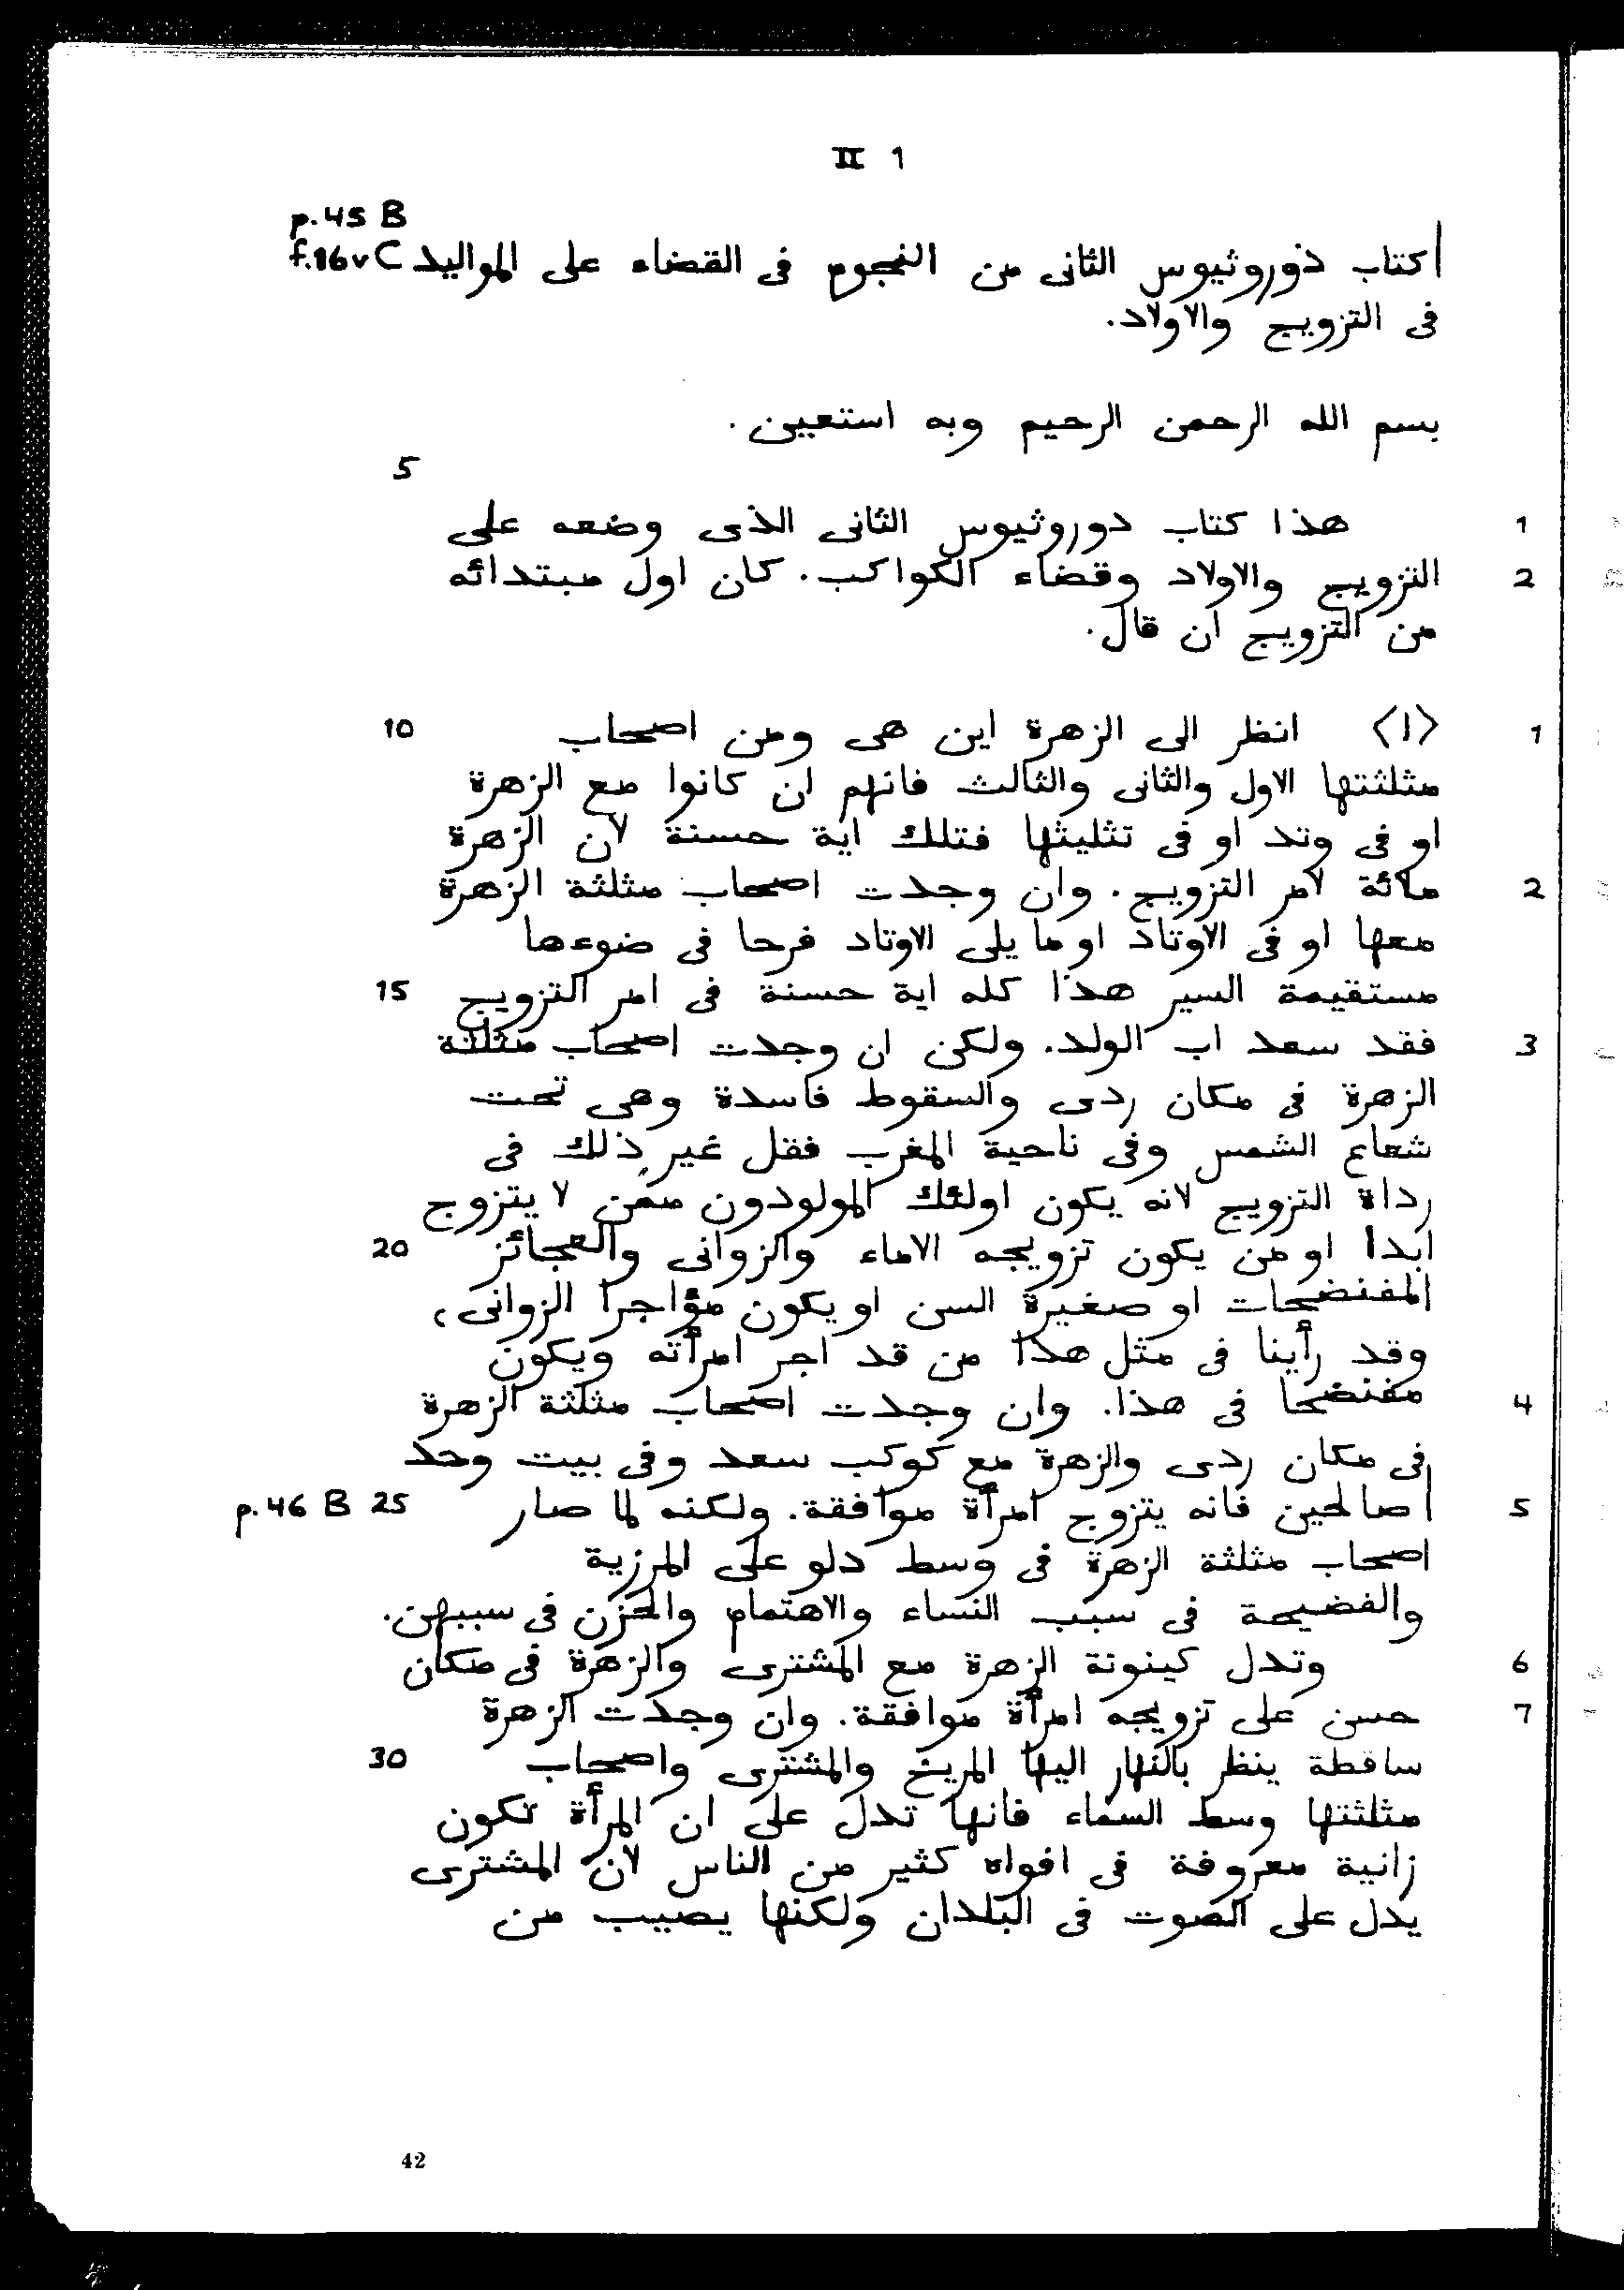 II 1
p.45 B
f.16v C |كتاب ذوروثيوس الثانى من النجوم فى القضاء على المواليد
فى التزويج والاولاد.
بسم الله الرحمن الرحيم وبه استعين.
5
1 هذا كتاب دوروثيوس الثانى الذى وضعه على
2 التزويج والاولاد وقضاء الكواكب. كان اول مبتدائه
من التزويج ان قال.
1 <ا> انظر الى الزهرة اين هى ومن اصحاب 10
مثلثتها الاول والثانى والثالث فانهم ان كانوا مع الزهرة
او فى وتد او فى تثليثها فتلك اية حسنة لان الزهرة
2 ملائة لامر التزويج. وان وجدت اصحاب مثلثة الزهرة
معها او فى الاوتاد او ما يلى الاوتاد فرحا فى ضوءها
مستقيمة السير هذا كله اية حسنة فى امر التزويج 15
3 فقد سعد اب الولد. ولكن ان وجدت اصحاب مثلثة
الزهرة فى مكان ردى والسقوط فاسدة وهى تحت
شعاع الشمس وفى ناحية المغرب فقل غير ذلك فى
رداة التزويج لانه يكون اولئك المولودون ممن لا يتزوج
ابدا او من يكون تزويجه الاماء والزوانى والعجائز 20
المفتضحات او صغيرة السن او يكون مؤاجرا الزوانى،
وقد رأينا فى مثل هذا من قد اجر امرأته ويكون
4 مفتضحا فى هذا. وان وجدت اصحاب مثلثة الزهرة
فى مكان ردى والزهرة مع كوكب سعد وفى بيت وحد
5 |صالحين فانه يتزوج امرأة موافقة. ولكنه لما صار p.46 B 25
اصحاب مثلثة الزهرة فى وسط دلو على المرزية
والفضيحة فى سبب النساء والاهتمام والحزن فى سببهن.
6 وتدل كينونة الزهرة مع المشترى والزهرة فى مكان
7 حسن على تزويجه امرأة موافقة. وان وجدت الزهرة
ساقطة ينظر بالنهار اليها المريخ والمشترى واصحاب 30
مثلثتها وسط السماء فانها تدل على ان المرأة تكون
زانية معروفة فى افواه كثير من الناس لان المشترى
يدل على الصوت فى البلدان ولكنها يصيب من
42